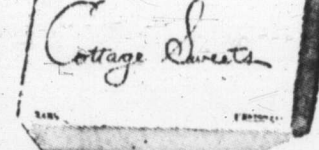 Cottage Sweets